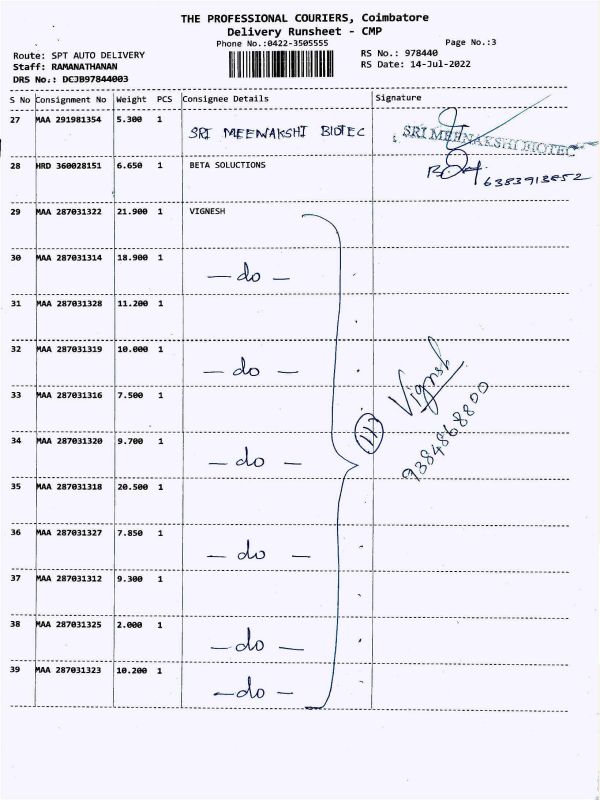 THE PROFESSIONAL COURIERS, Coimbatore
Delivery Runsheet - CMP
Phone No.:0422-3505555 Page No.:3
Route: SPT AUTO DELIVERY RS No.: 978440
Staff: RAMANATHANAN RS Date: 14-Jul-2022
DRS No.: DCJB97844003
S No Consignment No Weight PCS Consignee Details Signature
27 MAA 291981354 5.300 1 SRI MEENAKSHI BIOTEC SRI MEENAKSHI BIOTEC
28 HRD 360028151 6.650 1 BETA SOLUCTIONS 6383913852
29 MAA 287031322 21.900 1 VIGNESH
30 MAA 287031314 18.900 1 - do -
31 MAA 287031328 11.200 1
32 MAA 287031319 10.000 1 - do -
33 MAA 287031316 7.500 1
Vignsh
9384868800
34 MAA 287031320 9.700 1 - do -
35 MAA 287031318 20.500 1
36 MAA 287031327 7.850 1 - do -
37 MAA 287031312 9.300 1
38 MAA 287031325 2.000 1 - do -
39 MAA 287031323 10.200 1 - do -